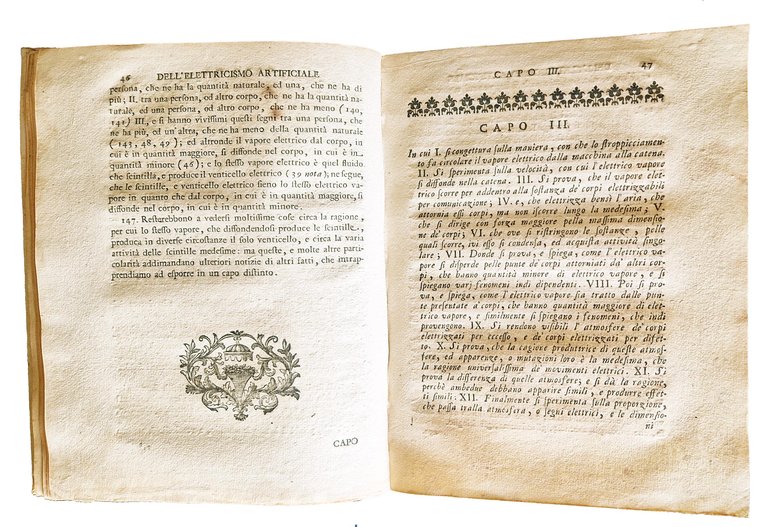 46 DELL'ELETTRICISMO ARTIFICIALE
persona, che ne ha la quantità naturale, ed una, che ne ha di
più; II. tra una persona, od altro corpo, che ne ha la quantità na-
turale, ed una persona, od altro corpo, che ne ha meno (140,
141) III, e si hanno vivissimi questi segni tra una persona, che
ne ha più, ed un'altra, che ne ha meno della quantità naturale
(143, 48, 49); ed altronde il vapore elettrico dal corpo, in
cui è in quantità maggiore, si diffonde nel corpo, in cui è in
quantità minore (46); e lo stesso vapore elettrico è quel fluido
che scintilla, e produce il venticello elettrico (39 nota); ne segue,
che le scintille, e venticello elettrico sieno lo stesso elettrico vapo-
re in quanto che dal corpo, in cui è in quantità maggiore, si
diffonde nel corpo, in cui è in quantità minore.
147. Resterebbono a vedersi moltissime cose circa la ragione,
per cui lo stesso vapore, che diffondendosi produce le scintille,
produca in diverse circostanze il solo venticello, e circa la varia
attività delle scintille medesime: ma queste, e molte altre parti-
colarità addimandano ulteriori notizie di altri fatti, che intrap-
prendiamo ad esporre in un capo distinto.
CAPO
CAPO III. 47
CAPO III.
In cui I. si congettura sulla maniera, con che lo stropicciamen-
to fa circolare il vapore elettrico dalla macchina alla catena.
II. Si sperimenta sulla velocità, con cui l'elettrico vapore
si diffonde nella catena. III. Si prova, che il vapore elet-
trico si spande per addentro alla sostanza de' corpi elettrizzabili
per comunicazione; IV. e, che elettrizza bensì l'aria, che
attornia essi corpi, ma non iscorre lungo la medesima; V.
che si dirige con forza maggiore pella massima dimensio-
ne de' corpi; VI. che ove si ristringono le sostanze, pelle
quali scorre, ivi esso si condensa, ed acquista attività singo-
lare; VII. Donde si prova, e spiega, come l'elettrico va-
pore si disperde pelle punte de' corpi attorniati da altri cor-
pi, che hanno quantità minore di elettrico vapore, e si
spiegano varj fenomeni indi dipendenti. VIII. Poi si pro-
va, e spiega, come l'elettrico vapore sia tratto dalle pun-
te presentate a' corpi, che hanno quantità maggiore di elet-
trico vapore, e similmente si spiegano i fenomeni, che indi
provengono. IX. Si rendono visibili l'atmosfere de' corpi
elettrizzati per eccesso, e de' corpi elettrizzati per difet-
to. X. Si prova, che la cagione produttrice di queste atmos-
fere, ed apparenze, o mutazioni loro è la medesima, che
la ragione universalissima de' movimenti elettrici. XI. Si
prova la differenza di quelle atmosfere; e si dà la ragione,
perchè ambedue debbano apparire simili, e produrre effet-
ti simili. XII. Finalmente si sperimenta sulla proporzione,
che passa tralla atmosfera, o segni elettrici, e le dimensio-
ni